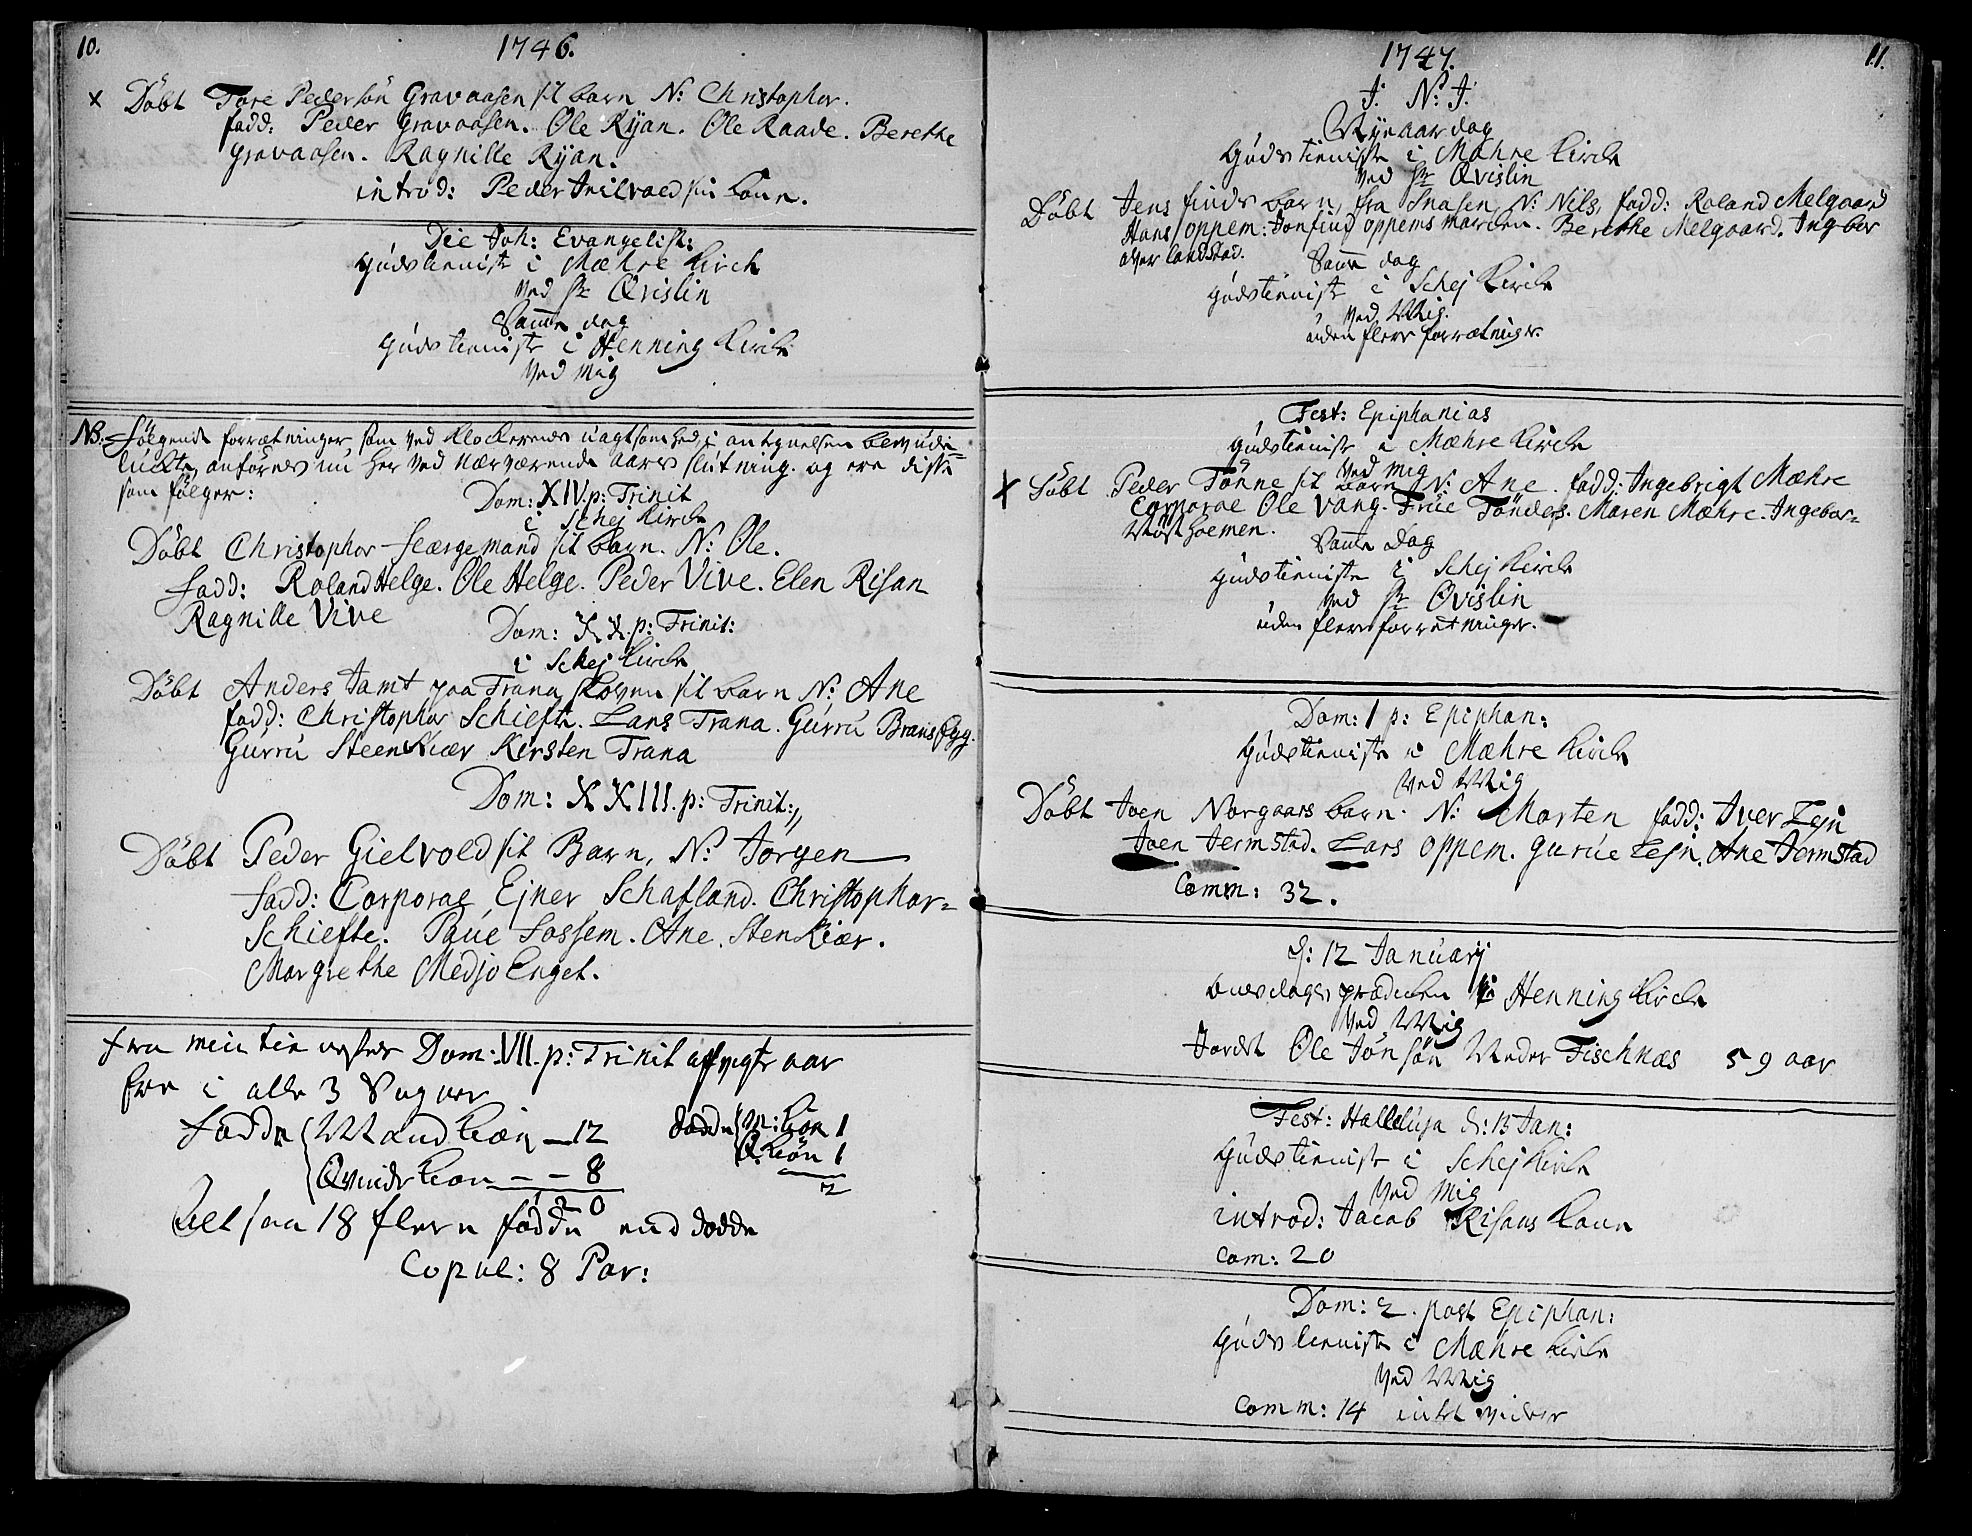 10.
1746.
x Döbt Tore Pedersön Gravaasen sit barn N: Christopher.
fadd: Peder Gravaasen. Ole Ryan. Ole Raade. Berethe
Gravaasen. Ragnille Ryan.
introd: Peder kone.
Die Joh: Evangelist:
Gudstieniste i Mæhre Kirch
ved Hr Qvislin
Samme dag
Gudstieniste i Henning Kirche
ved mig
NB. Følgende forrætninger som ved Klockerens uagtsomhed i antegnelsen
anföres nu her ved nærværende aars slutning. og ere disse
som fölger:
Dom: XIV. p: Trinit
i Schej Kirche
Döbt Christopher Færgemand sit barn. N: Ole.
fadd: Roland Helge. Ole Helge. Peder Vive. Elen Risan
Ragnille Vive
Dom: XX. p: Trinit:
i Schej Kirche
Döbt Anders Jamt paa Trana skoven sit barn N: Ane
fadd: Christopher Schiefte. Lars Trana. Gurru
Gurru Steenkiær Kirsten Trana
Dom: XXIII. p: Trinit:
Döbt Peder Gielvold sit Barn, N: Jörgen
fadd: Corporal Ejner Schafland. Christopher
Schiefte. Paul Fossem. Ane Stenkiær.
Margrethe Medjo Enget.
Fra min tieniste Dom: VII. p: Trinit afvigte aar
her i alle 3 Sogner
födde Mandkiön 12 dödde M: kiön 1
Qvindekiön 8 Q. kiön 1
20 2
altsaa 18 flere födde end dödde
Copul: 8 Par:
11.
1747.
J. N: J.
Nyeaarsdag
Gudstieniste i Mæhre Kirche
ved Hr Qvislin
Döbt Jens finds barn, fra Snasen, N: Nils, fadd: Roland Melgaard
Hans oppem: Jonfind oppems Marchen. Berethe Melgaard. Ingbor
over landstad.
Samme dag
Gudstieniste i Schej Kirche
ved Mig.
uden flere forrætninger.
Fest: Epiphanias
Gudstieniste i Mæhre Kirche
ved mig
x Döbt Peder Tönne sit barn N: Ane. fadd: Ingebrigt Mæhre
Corporal Ole Vang. Frue Tönders. Maren Mæhre. Ingebor=
holmen.
Samme Dag
Gudstieniste i Schej Kirche
ved Hr Qvislin
uden flere forretninger.
Dom: 1 p: Epiphan:
Gudstieniste i Mæhre Kirche
ved Mig
Döbt Joen Norgaars barn. N: Morten fadd: Iver Lejn
Joen Jermstad. Lars oppem. Gurue Lejn. Ane Jermstad
Comm: 32.
d: 12 Januarij
prædiken i Henning Kirche
ved Mig
Jordet Ole Jönsön Neder Fischnæs 59 aar
Fest: Halleluja d: 15 Jan:
Gudstieniste i Schej Kirche
ved mig
introd: Jacob Risans kone
Com: 20
Dom: 2. post Epiphan:
Gudstieniste i Mæhre Kirche
ved Mig
Comm: 14 intet videre